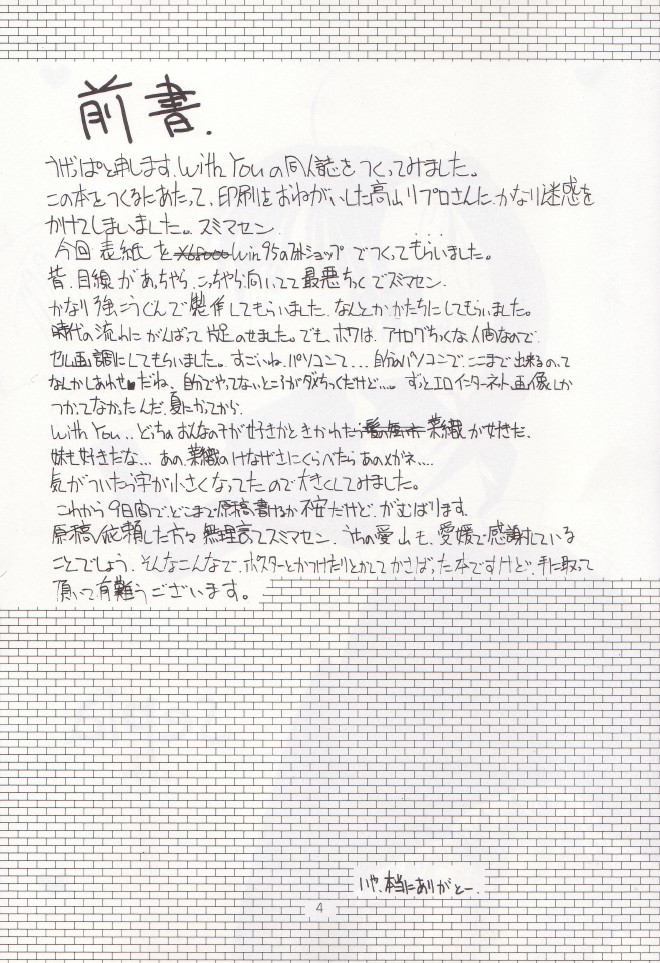 前書.
うげっぱと申します。With Youの同人誌をつくってみました。
この本をつくるにあたって、印刷をおねがいした高山リプロさんに、かなり迷惑を
かけてしまいました。スミマセン.
今回 表紙を X68000 Win95のフォトショップ でつくってもらいました。
昔、目線があっちやら、こっちやら向いてて最悪ちっくでズミマセン.
かなり強こうぐんで製作してもらいました. なんとか かたちにしてもらいました。
時代の流れにがんばって片足のせました。でも、ボクは、アナログちっくな人間なので、
セル画調にしてもらいました。すごいね、パソコンて... 自分のパソコンで、ここまで出来るのって
なんかしあわせ♥だね、自分でやってないところがダメちっくだけど…。ずっとエロインターネット画像しか
つかってなかったんだ. 夏にかってから.
With You.. どっちのおんなの子が好きかときかれたら 菜織が好きだ.
妹も好きだな... あの、菜織のけなげさにくらべたらあのメガネ....
気がついたら字が小さくなってたので大きくしてみました。
これから9日間で、どこまで原稿書けるか不安だけど、がむばります.
原稿依頼した方々 無理言ってスミマセン. うちの愛山も、愛媛で感謝している
ことでしょう. そんなこんなで、ポスターとかつけたりとかしてかさばった本ですけど、手に取って
頂いて有難うございます。
いや、本当にありがとー.
4